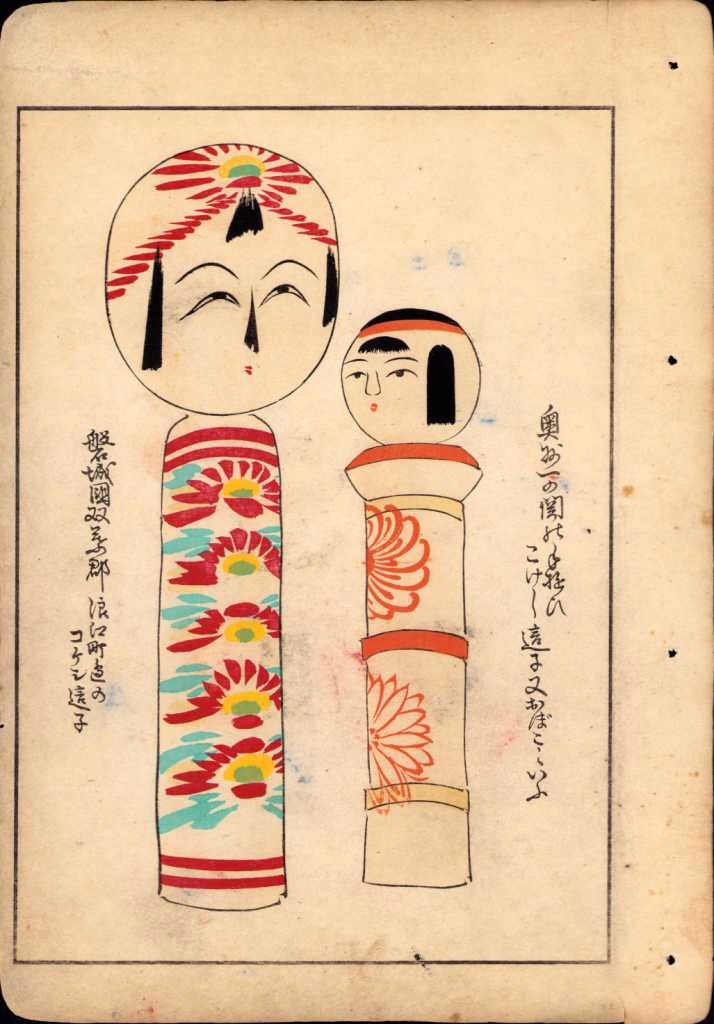 奥州一の関の手遊ひ
こけし這子又おぼこといふ
磐城國双葉郡 浪江町邊の
コケシ這子